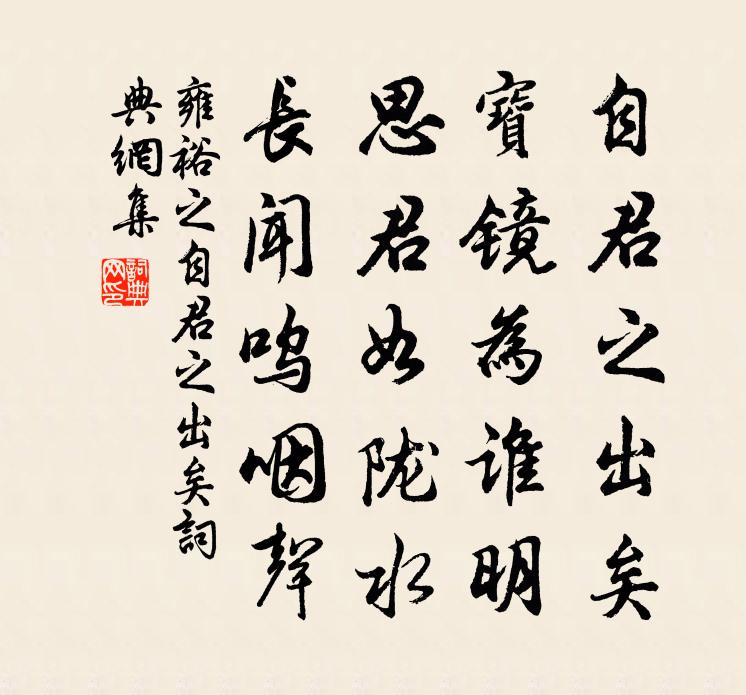 自君之出矣
寶镜為谁明
思君如陇水
長闻鸣咽聲
雍裕之自君之出矣詞
典網集
詞典
网印